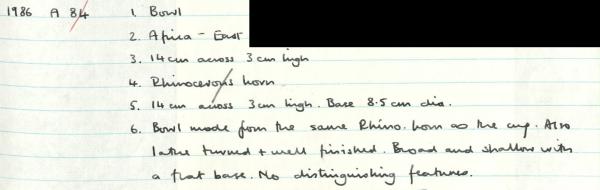 1986 A 84 1. Bowl
2. Africa - East
3. 14cm across 3cm high
4. Rhinocerous horn
5. 14cm across 3cm high. Base 8.5cm dia.
6. Bowl made from the same Rhino. horn as the cup. Also
lathe turned + well finished. Broad and shallow with
a flat base. No distinguishing features.